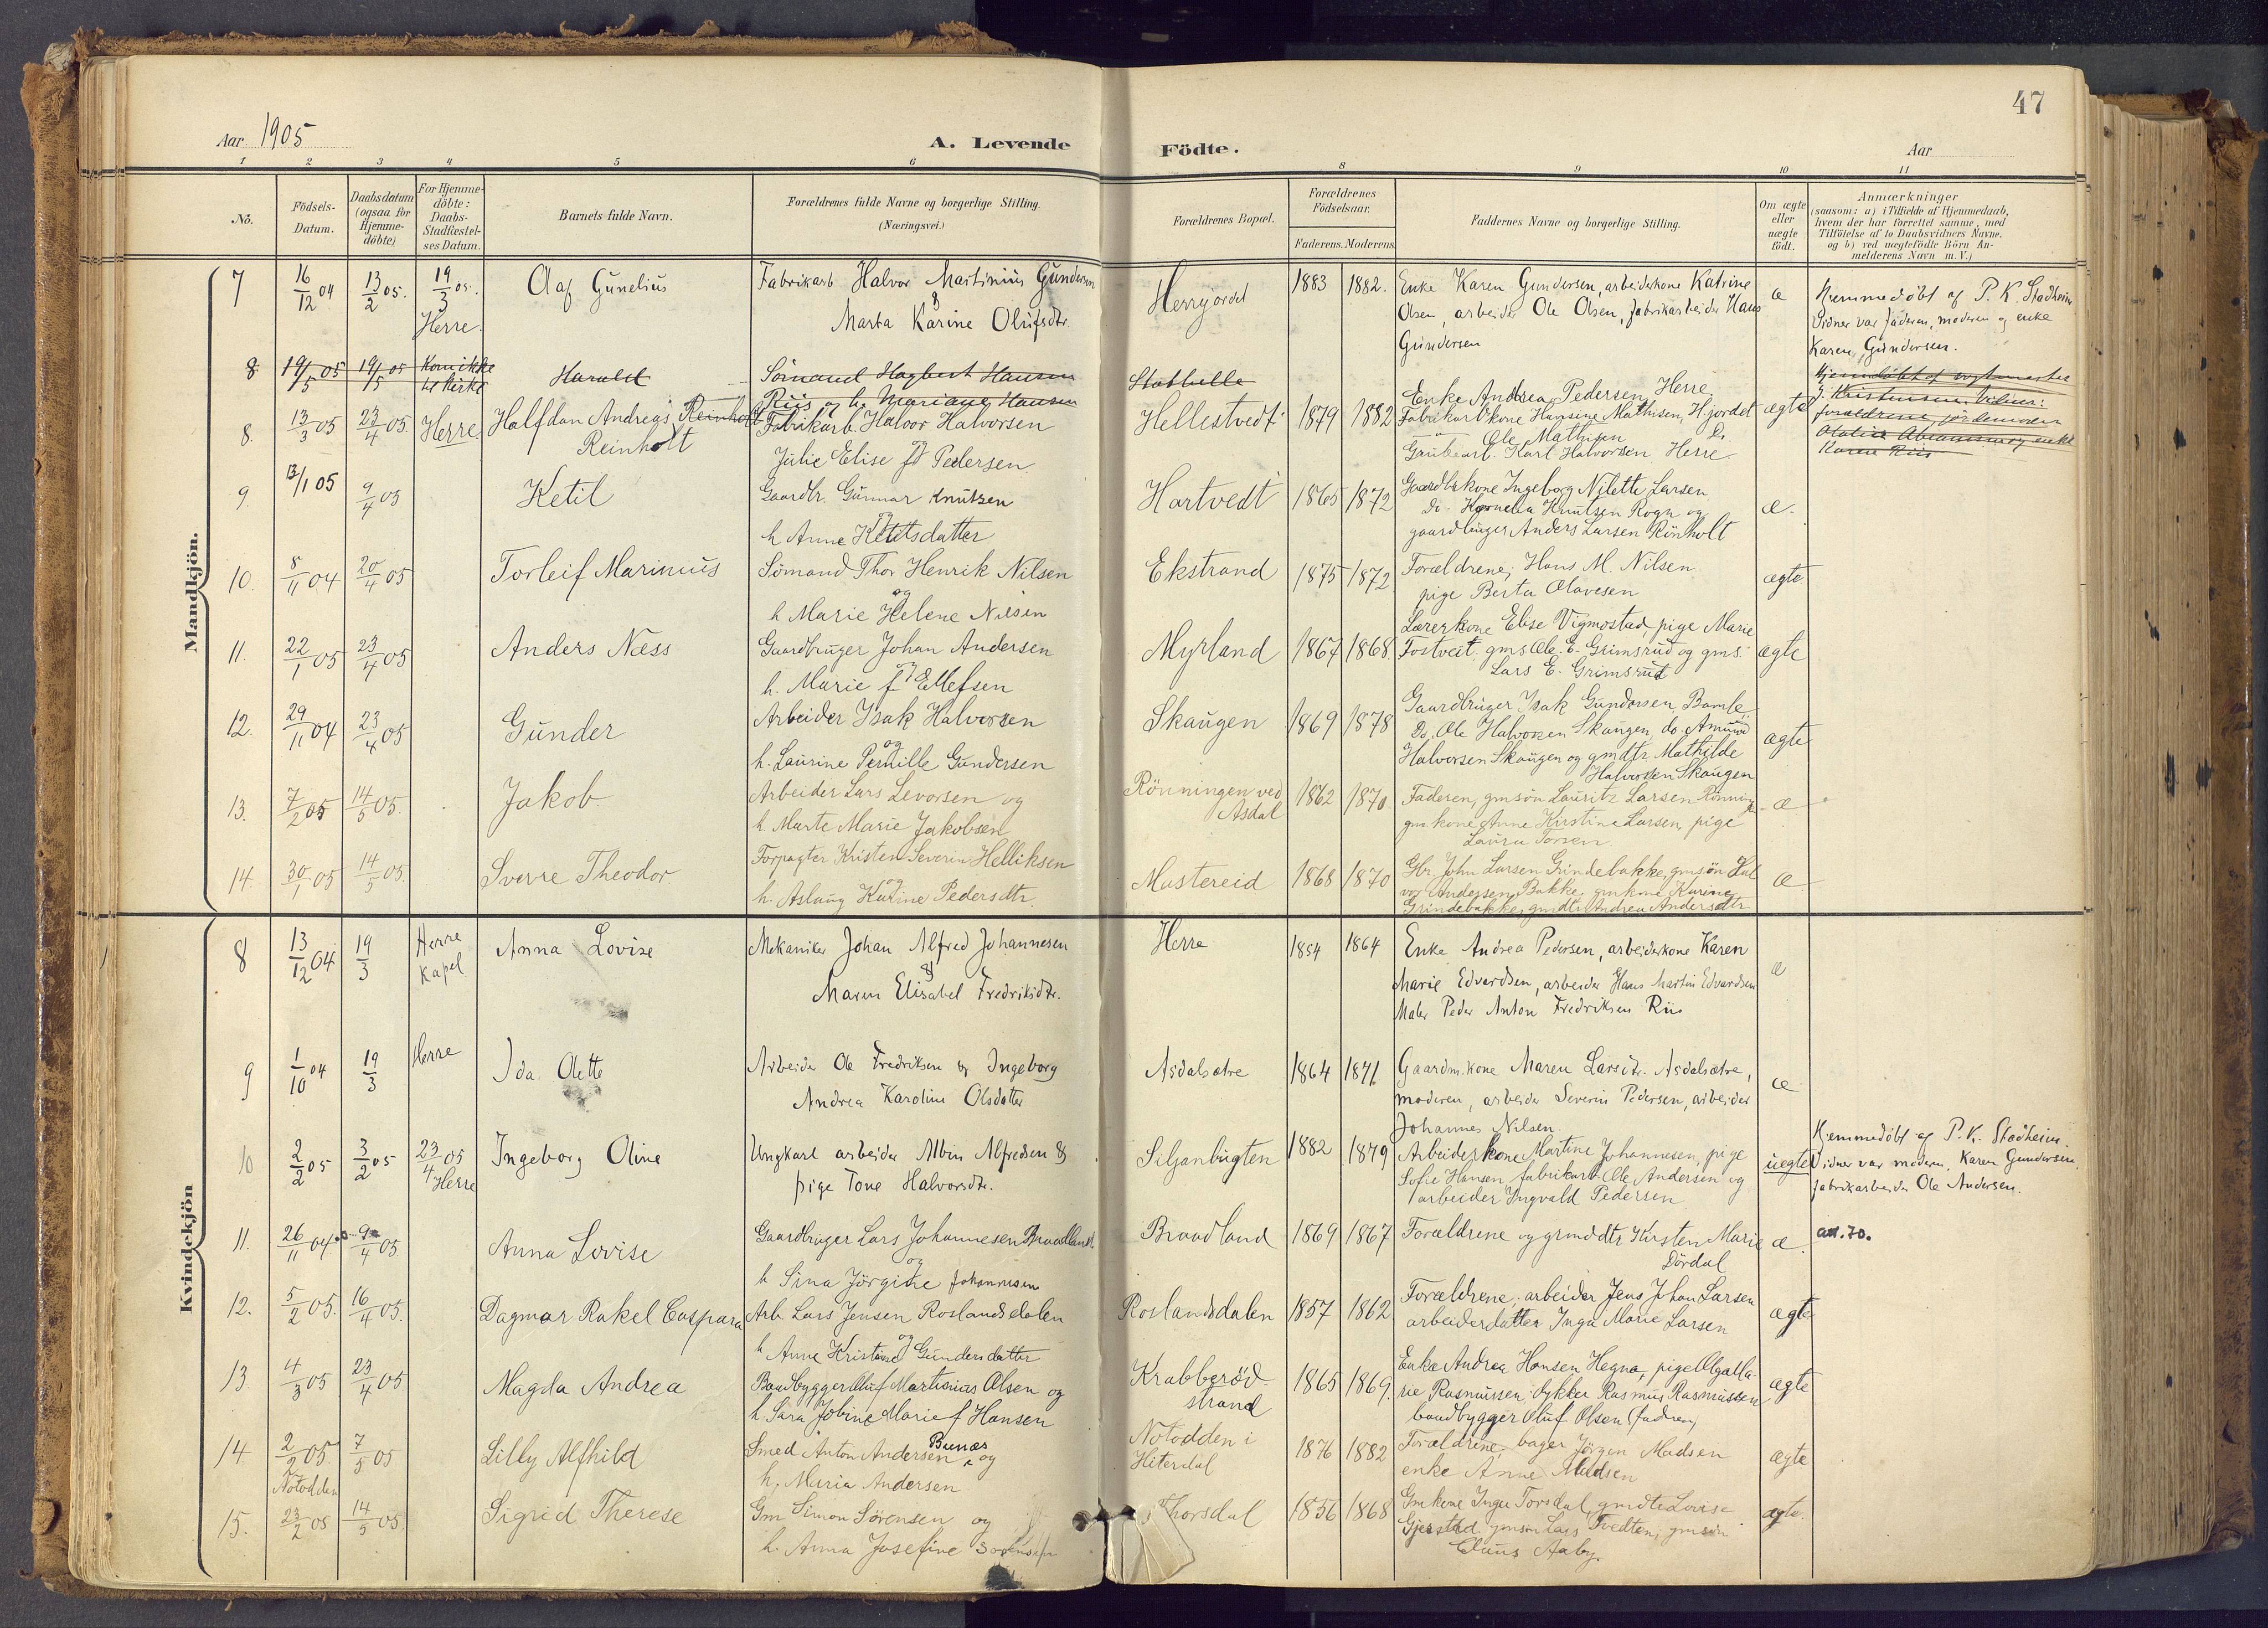 47
Aar 1905
A. Levende Födte.
Aar
1 2 3 4 5 6 8 9 10 11
No.
Födsels-Datum.
Daabsdatum (ogsaa for Hjemme-döbte)
For Hjemme-döbte: Daabs-Stadfæstel-ses Datum.
Barnets fulde Navn.
Forældrenes fulde Navne og borgerlige Stilling. (Næringsvei.)
Forældrenes Bopæl.
Forældrenes Födselsaar.
Faderens. Moderens.
Faddernes Navne og borgerlige Stilling.
Om ægte eller uægte födt.
Anmærkninger
(saasom: a) i Tilfælde af Hjemmedaab, hvem der har forrettet samme, med Tilföielse af to Daabsvidners Navne, og b) ved uægtefödte Börn An-melderens Navn m. V.)
Mandkjön.
7 16/12 04 13/2 05. 19/3 05. Herre. Olaf Gunelius
Fabrikarb Halvor Martinius Gundersen & Marta Karine Olufsdtr.
Herrejordet 1883 1882.
Enke Karen Gundersen, arbeiderkone Katrine
Olsen, arbeider Ole Olsen, fabrikarbeider Hans
Gundersen
æ
Hjemmedøbt af P. K. Stadheim
Vidner var faderen, moderen og enke
Karen Gundersen.
8 19/5 05 19/5 05 Kom ikke til kirke Harald
Sömand Hagbert Hansen
Riis og h. Mariane Hansen
Stathelle
Hjemmedöbt af
J. Kristensen. Vidner:
forældrene, jordemoder
enke
Karen Riis
8. 13/3 05 23/4 05. Herre. Halfdan Andreas Reinholt
Reinholt
Fabrikarb. Halvor Halvorsen
og
Julie Elise f Pedersen
Hellestvedt 1879 1882
Enke Andrea Pedersen, Herre
Fabrikarb kone Hansine Mathisen, Hjordet
Ole Mathisen Do
Grubearb. Karl Halvorsen Herre
ægte
9. 13/1 05 9/4 05 Ketil
Gaardbr. Gunnar Knutsen
og
h Anne Ketilsdatter
Hartvedt 1865 1872
Gaardbrkone Ingeborg Nilette Larsen
do. Kornelia Knutsen Rogn og
gaardbruger Anders Larsen Rönholt
æ.
10. 5/11 04 20/4 05 Torleif Marinius
Sömand Thor Henrik Nilsen
og
h Marie Helene Nilsen
Ekstrand 1875 1872
Forældrene, Hans M. Nilsen
pige Berta Olavesen
ægte
11. 22/1 05 23/4 05 Anders Næss
Gaardbruger Johan Andersen
og
h. Marie f Ellefsen
Myrland 1867 1868
Lærerkone Elise Vigmostad, pige Marie
Tostvedt gms Ole E. Grimsrud og gms.
Lars E. Grimsrud
ægte
12. 29/11 04 23/4 05 Gunder
Arbeider Isak Halvorsen
og
h. Laurine Pernille Gundersen
Skaugen 1869 1878
Gaardbruger Isak Gundersen, Bamle
Do. Ole Halvorsen Skaugen, do Amund
Halvorsen Skaugen og gmdtr. Mathilde
Halvorsen Skaugen
ægte
13. 7/2 05 14/5 05. Jakob
Arbeider Lars Levorsen og
h. Marte Marie Jakobsen
Rönningen ved Asdal 1862 1870
Faderen, gmsön Lauritz Larsen Rönningen
gmkone Anne Kirstine Larsen, pige
Laura Torsen.
æ
14. 30/1 05 14/5 05. Sverre Theodor
Forpagter Kristen Severin Helliksen
og
h. Aslaug Karine Pedersdtr.
Mustereid 1868 1870
Gbr. John Larsen Grindebakke, gmsön Hal
vor Andersen Bakke, gmkone Karine
Grindebakke, gmdtr. Andrea Andersdtr
æ
Kvindekjön
8 13/12 04 19/3 Herre kapel Anna Lovise
Mekaniker Johan Alfred Johannesen
&
Maren Elisabet Fredriksdtr.
Herre 1854 1864
Enke Andrea Pedersen, arbeiderkone Karen
Marie Edvardsen, arbeider Hans Martin Edvardsen
Maler Peder Anton Fredriksen Riis
æ
9 1/10 04 19/3 Herre Ida Olette
Arbeider Ole Fredriksen & Ingeborg
Andrea Karoline Olsdatter
Asdalsætre 1864 1871
Gaardm.kone Maren Larsdtr. Asdalsætre,
moderen, arbeider Severin Pedersen, arbeider
Johannes Nilsen.
æ
10 2/2 05 3/2 05 23/4 05 Herre Ingeborg Oline
Ungkarl arbeider Albin Alfredsen &
pige Tone Halvorsdtr.
Seljanbugten 1882 1879
Arbeiderkone Martine Johannesen, pige
Sofie Hansen, fabrikarb Ole Andersen og
arbeider Ingvald Pedersen
uegte
Hjemmedøbt af P. K. Stadheim.
Vidner var moderen, Karen Gundersen,
fabrikarbeider Ole Andersen.
11. 26/11 04 9/4 05 Anna Lovise
Gaardbruger Lars Johannesen Braadland.
og
h Sina Jörgine Johannesen
Braadland 1869 1867
Forældrene og gmddtr Kirsten Marie
Dördal
æ.
12. 5/2 05. 16/4 05. Dagmar Rakel Caspara
Arb. Lars Jensen Roslandsdalen
og
h Anne Kristine Gundersdatter
Roslandsdalen 1857 1862
Forældrene, arbeider Jens Johan Larsen
arbeiderdatter Inga Marie Larsen
ægte
13 4/3 05 23/4 05 Magda Andrea
Baadbygger Oluf Martinius Olsen og
h. Sara Jobine Marie f Hansen
Krabberöd-strand 1865 1869.
Enke Andrea Hansen Hegna, pige Olga Ma-
rie Rasmussen dykker Rasmus Rasmussen
baadbygger Oluf Olsen (faderen)
ægte
14 2/2 05 Notodden 7/5 05 Lilly Alfhild
Smed Anton Andersen Bunæs og
h. Maria Andersen
Notodden i Hiterdal 1876 1882
Forældrene, bager Jörgen Madsen
enke Anne Madsen
ægte
15. 23/2 05 14/5 05. Sigrid Therese
Gm Simon Sörensen og
h. Anna Josefine Sörensen
Thorsdal 1856 1868
Gmkone Inga Torsdal, gmdtr Lovise
Gjerstad gmsön Lars Tvedten, gmsön
Claus Aaby.
ægte.